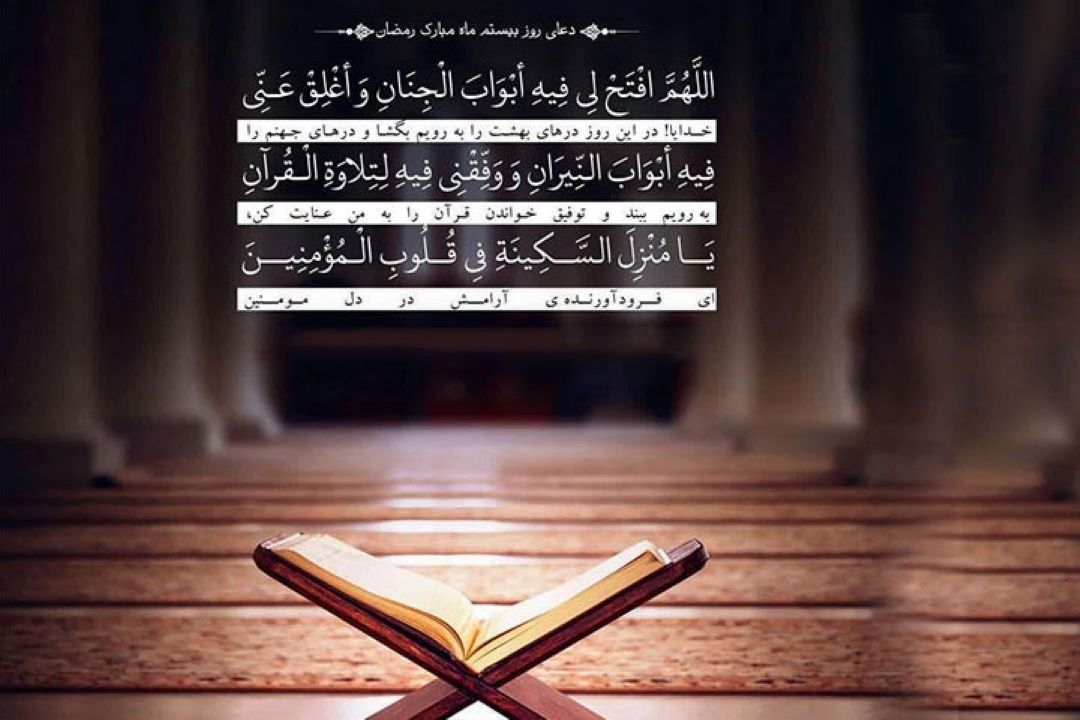 دعای روز بیستم ماه مبارک رمضان
اللَّهُمَّ افْتَحْ لِی فِیهِ أَبْوَابَ الْجِنَانِ وَ أَغْلِقْ عَنِّی
خدایا! در این روز درهای بهشت را به رویم بگشا و درهای جهنم را
فِیهِ أَبْوَابَ النِّیرَانِ وَ وَفِّقْنِی فِیهِ لِتِلاوَةِ الْقُرْآنِ
به رویم ببند و توفیق خواندن قرآن را به من عنایت کن،
یَا مُنْزِلَ السَّکِینَةِ فِی قُلُوبِ الْمُؤْمِنِینَ
ای فرودآورنده ی آرامش در دل مومنین